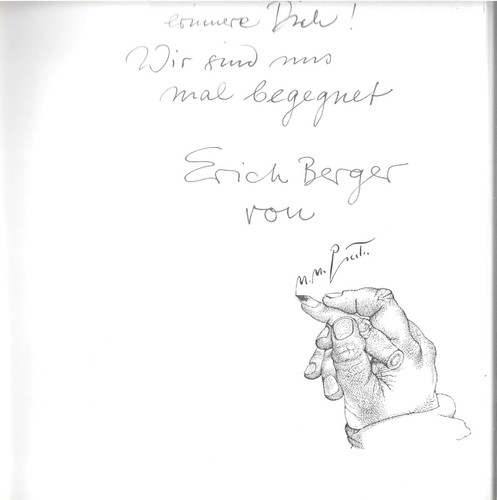 erinnere Dich!
Wir sind uns
mal begegnet
Erich Berger
von
M. M. Prechtl